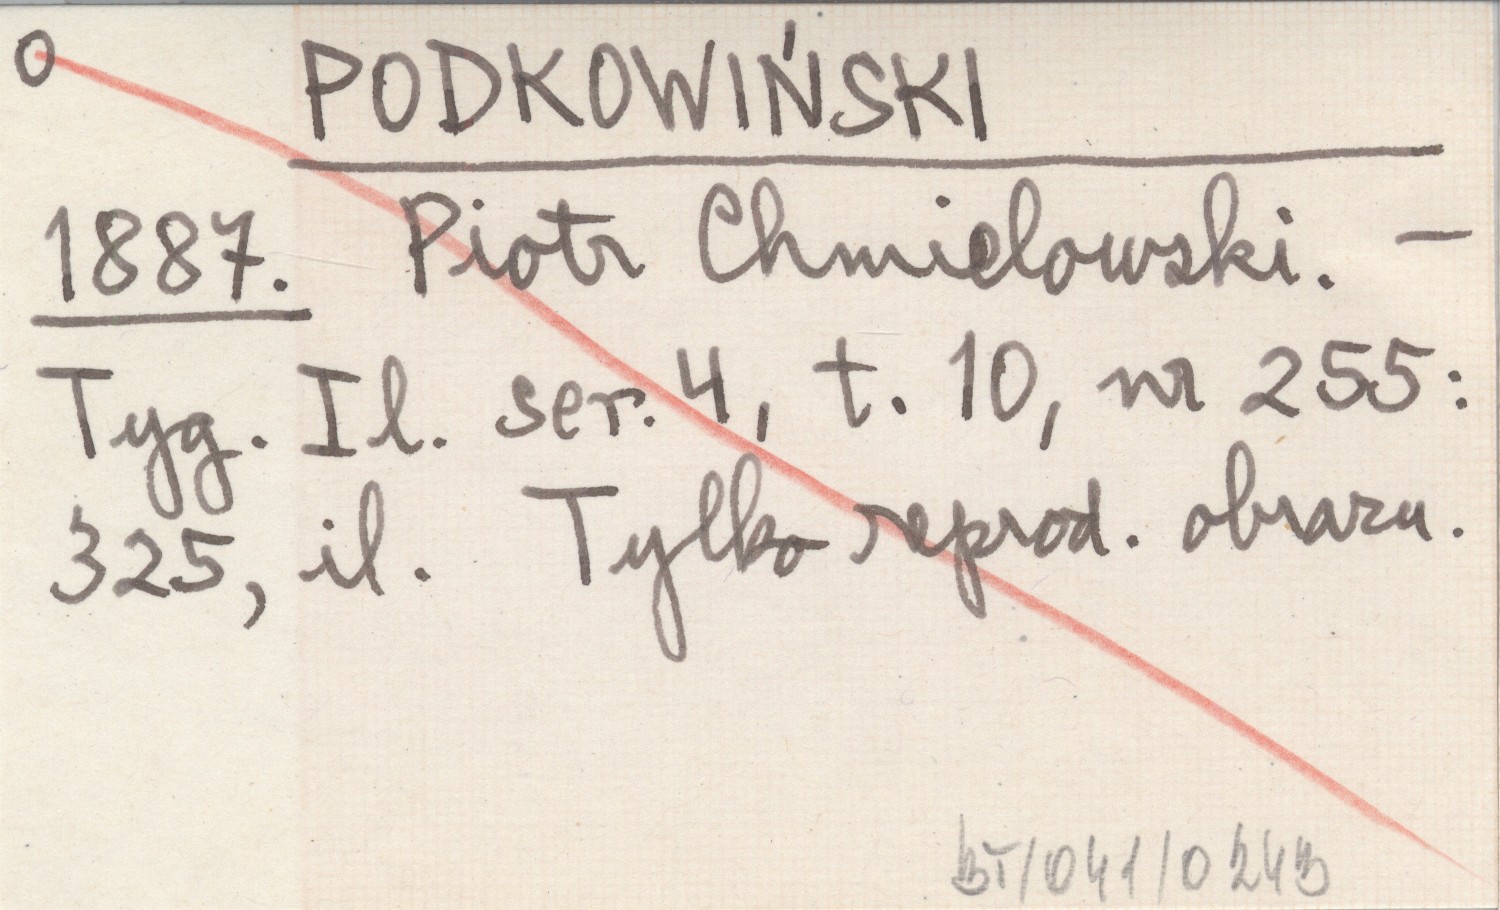 O PODKOWIŃSKI
1887. Piotr Chmielowski. —
Tyg. Il. ser. 4, t. 10, nr 255:
325, il. Tylko reprod. obrazu.
BT/041/0243